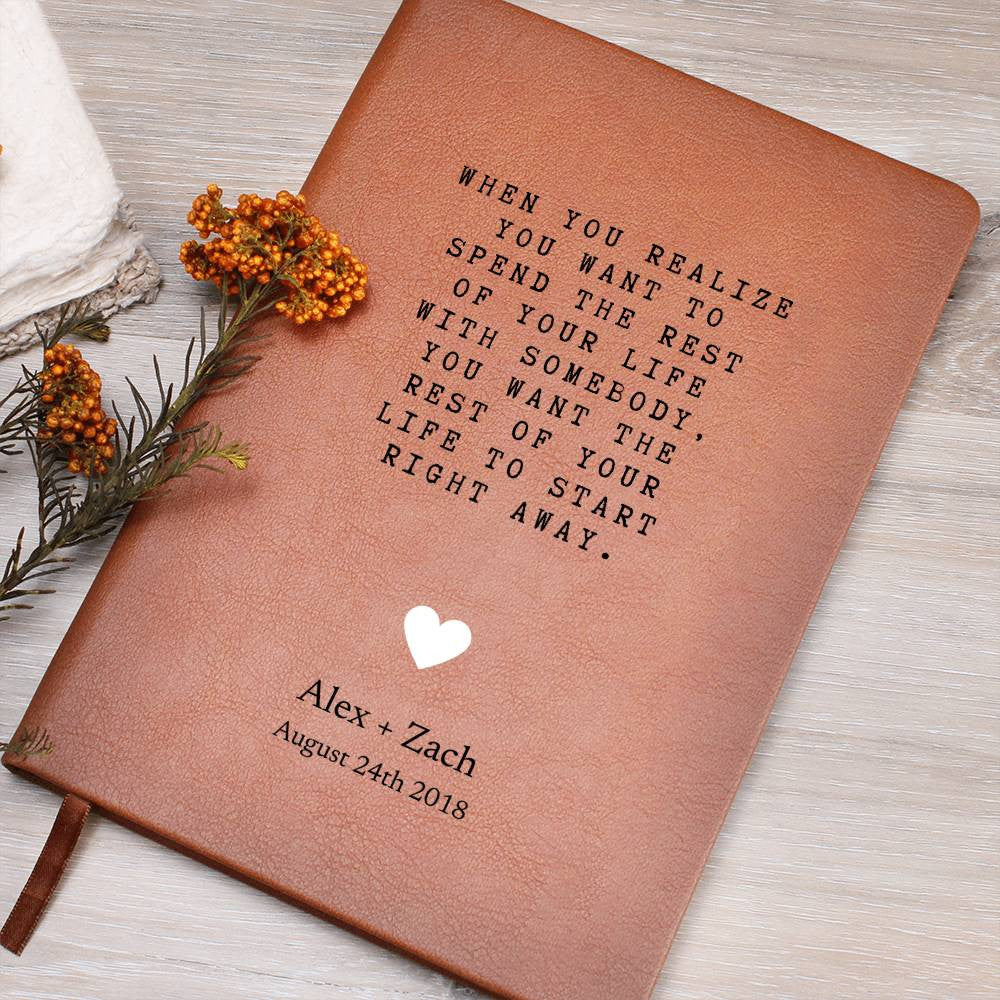 WHEN YOU REALIZE
YOU WANT TO
SPEND THE REST
OF YOUR LIFE
WITH SOMEBODY,
YOU WANT THE
REST OF YOUR
LIFE TO START
RIGHT AWAY.
Alex + Zach
August 24th 2018